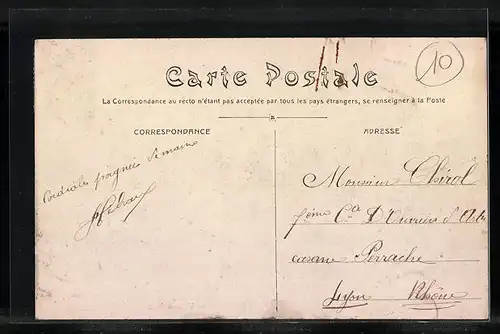 10
Carte Postale
La Correspondance au recto n'étant pas acceptée par tous les pays étrangers, se renseigner à la Poste
CORRESPONDANCE
ADRESSE
Cordiale poignée de main
Monsieur Chirol
Cie d'Ouvriers d'
caserne Perrache
Lyon Rhône